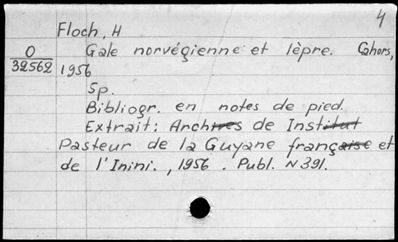 4
Floch, H
O Gale norvégienne et lèpre. Cahors,
32562 1956
5p.
Bibliogr. en notes de pied.
Extrait: Archives de Institut
Pasteur de la Guyane française et
de l'Inini., 1956. Publ. N 391.